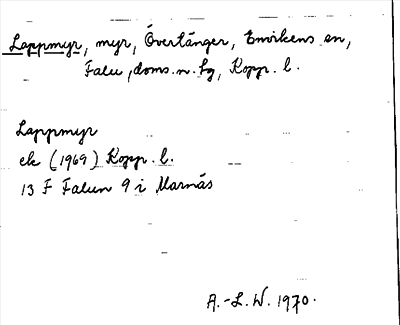 Lappmyr, myr, Övertänger, Envikens sn,
Falu, doms.n. fg, Kopp. l.
Lappmyr
ek (1969) Kopp. l.
13 F Falun 9 i Marnäs
A.-L. W. 1970.